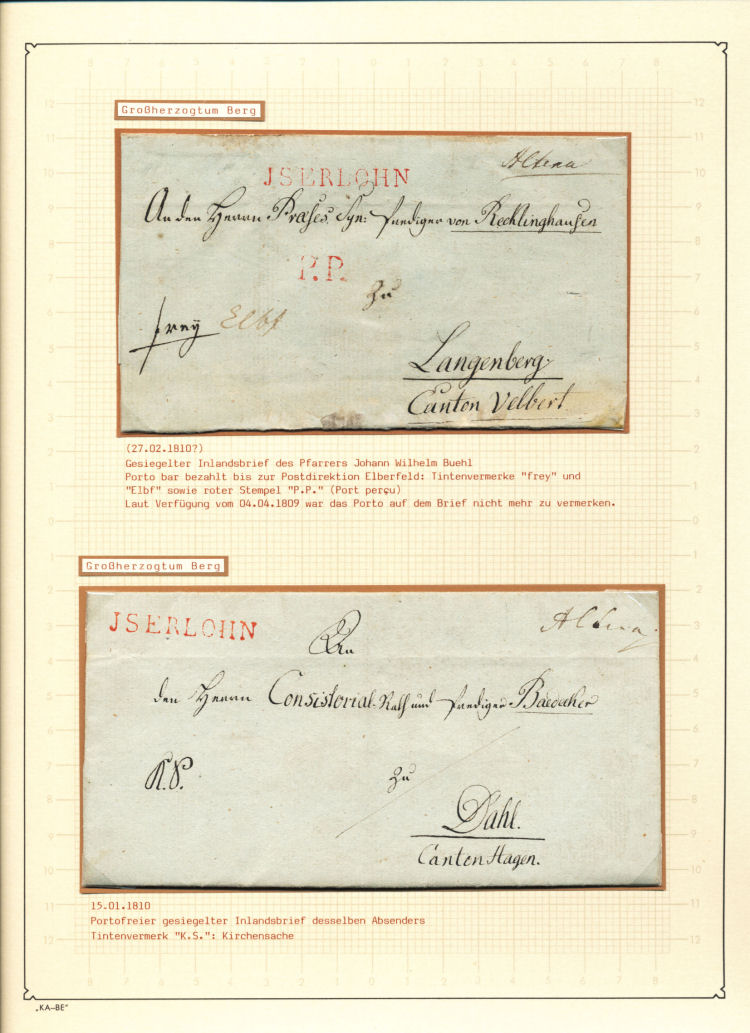 Großherzogtum Berg
Altena
JSERLOHN
An den Herrn Præses Syn: Prediger von Recklinghausen
P.P.
zu
frey Elbf
Langenberg
Canton Velbert
(27.02.1810?)
Gesiegelter Inlandsbrief des Pfarrers Johann Wilhelm Buehl
Porto bar bezahlt bis zur Postdirektion Elberfeld: Tintenvermerke "frey" und
"Elbf" sowie roter Stempel "P.P." (Port perçu)
Laut Verfügung vom 04.04.1809 war das Porto auf dem Brief nicht mehr zu vermerken.
Großherzogtum Berg
JSERLOHN
Altena
An
den Herrn Consistorial-Rath und Prediger Baedecker
K.S.
zu
Dahl.
Canton Hagen.
15.01.1810
Portofreier gesiegelter Inlandsbrief desselben Absenders
Tintenvermerk "K.S.": Kirchensache
„KA–BE"